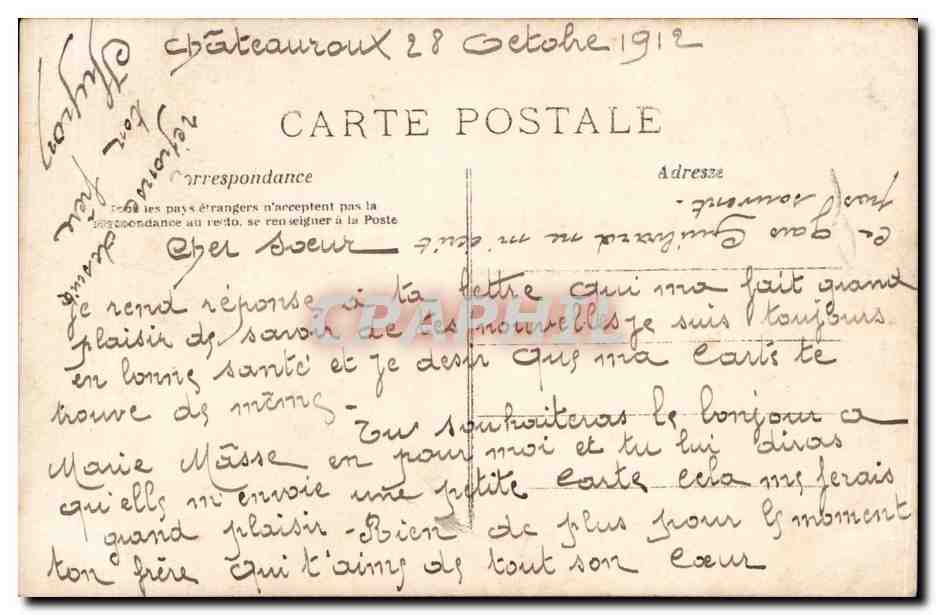 Châteauroux 28 Octobre 1912
CARTE POSTALE
Correspondance
Adresse
Tous les pays étrangers n'acceptent pas la
correspondance au recto, se renseigner à la Poste
Cher Sœur
je rend réponse à ta lettre qui ma fait grand
plaisir de savoir de tes nouvelles je suis toujours
en bonne santé et je desir que ma carte te
trouve de même -
Tu souhaiteras le bonjour a
Marie Mâsse en pour moi et tu lui diras
qu'elle m'envoie une petite carte cela me ferais
grand plaisir - Rien de plus pour le moment
ton frère qui t'aime de tout son cœur
ton frère
réponse de suite
Le gas ne m'écrit
pas souvent.
CPAPHIL